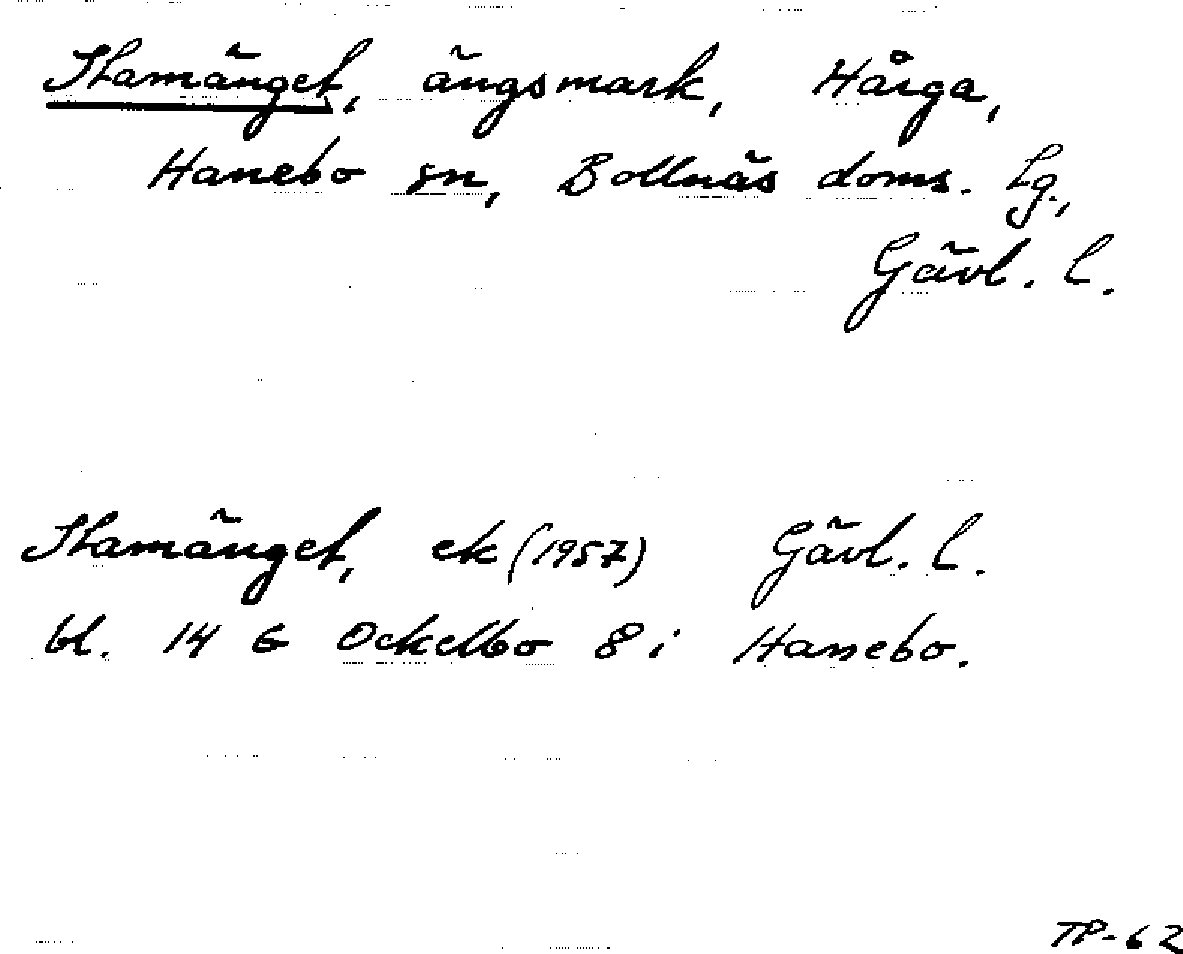 Stamänget, ängsmark, Hårga,
Hanebo sn, Bollnäs doms. Lg.,
Gävl. l.
Stamänget, ek (1957) Gävl. l.
bl. 14 G Ockelbo 8 i Hanebo.
TP-62